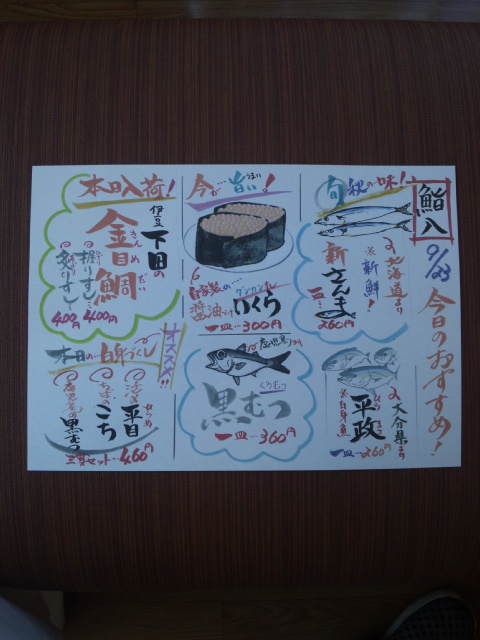 鮨八
9/23
今日のおすすめ!
旬 秋の味!
北海道より
※新鮮!
新さんま
一皿…260円
大分県より
平政
※白身魚
一皿…260円
今が…旨い!
うまい
自家製の
グンカンにて
醤油づけ
いくら
一皿…300円
鹿児島より
くろむつ
黒むつ
一皿…360円
本日入荷!
伊豆
下田の
きんめだい
金目鯛
握りずし…400円
炙りずし…400円
オススメ!!
本日の…白身づくし
ひらめ
平目
こち
鹿児島の
黒むつ
三貫セット…460円